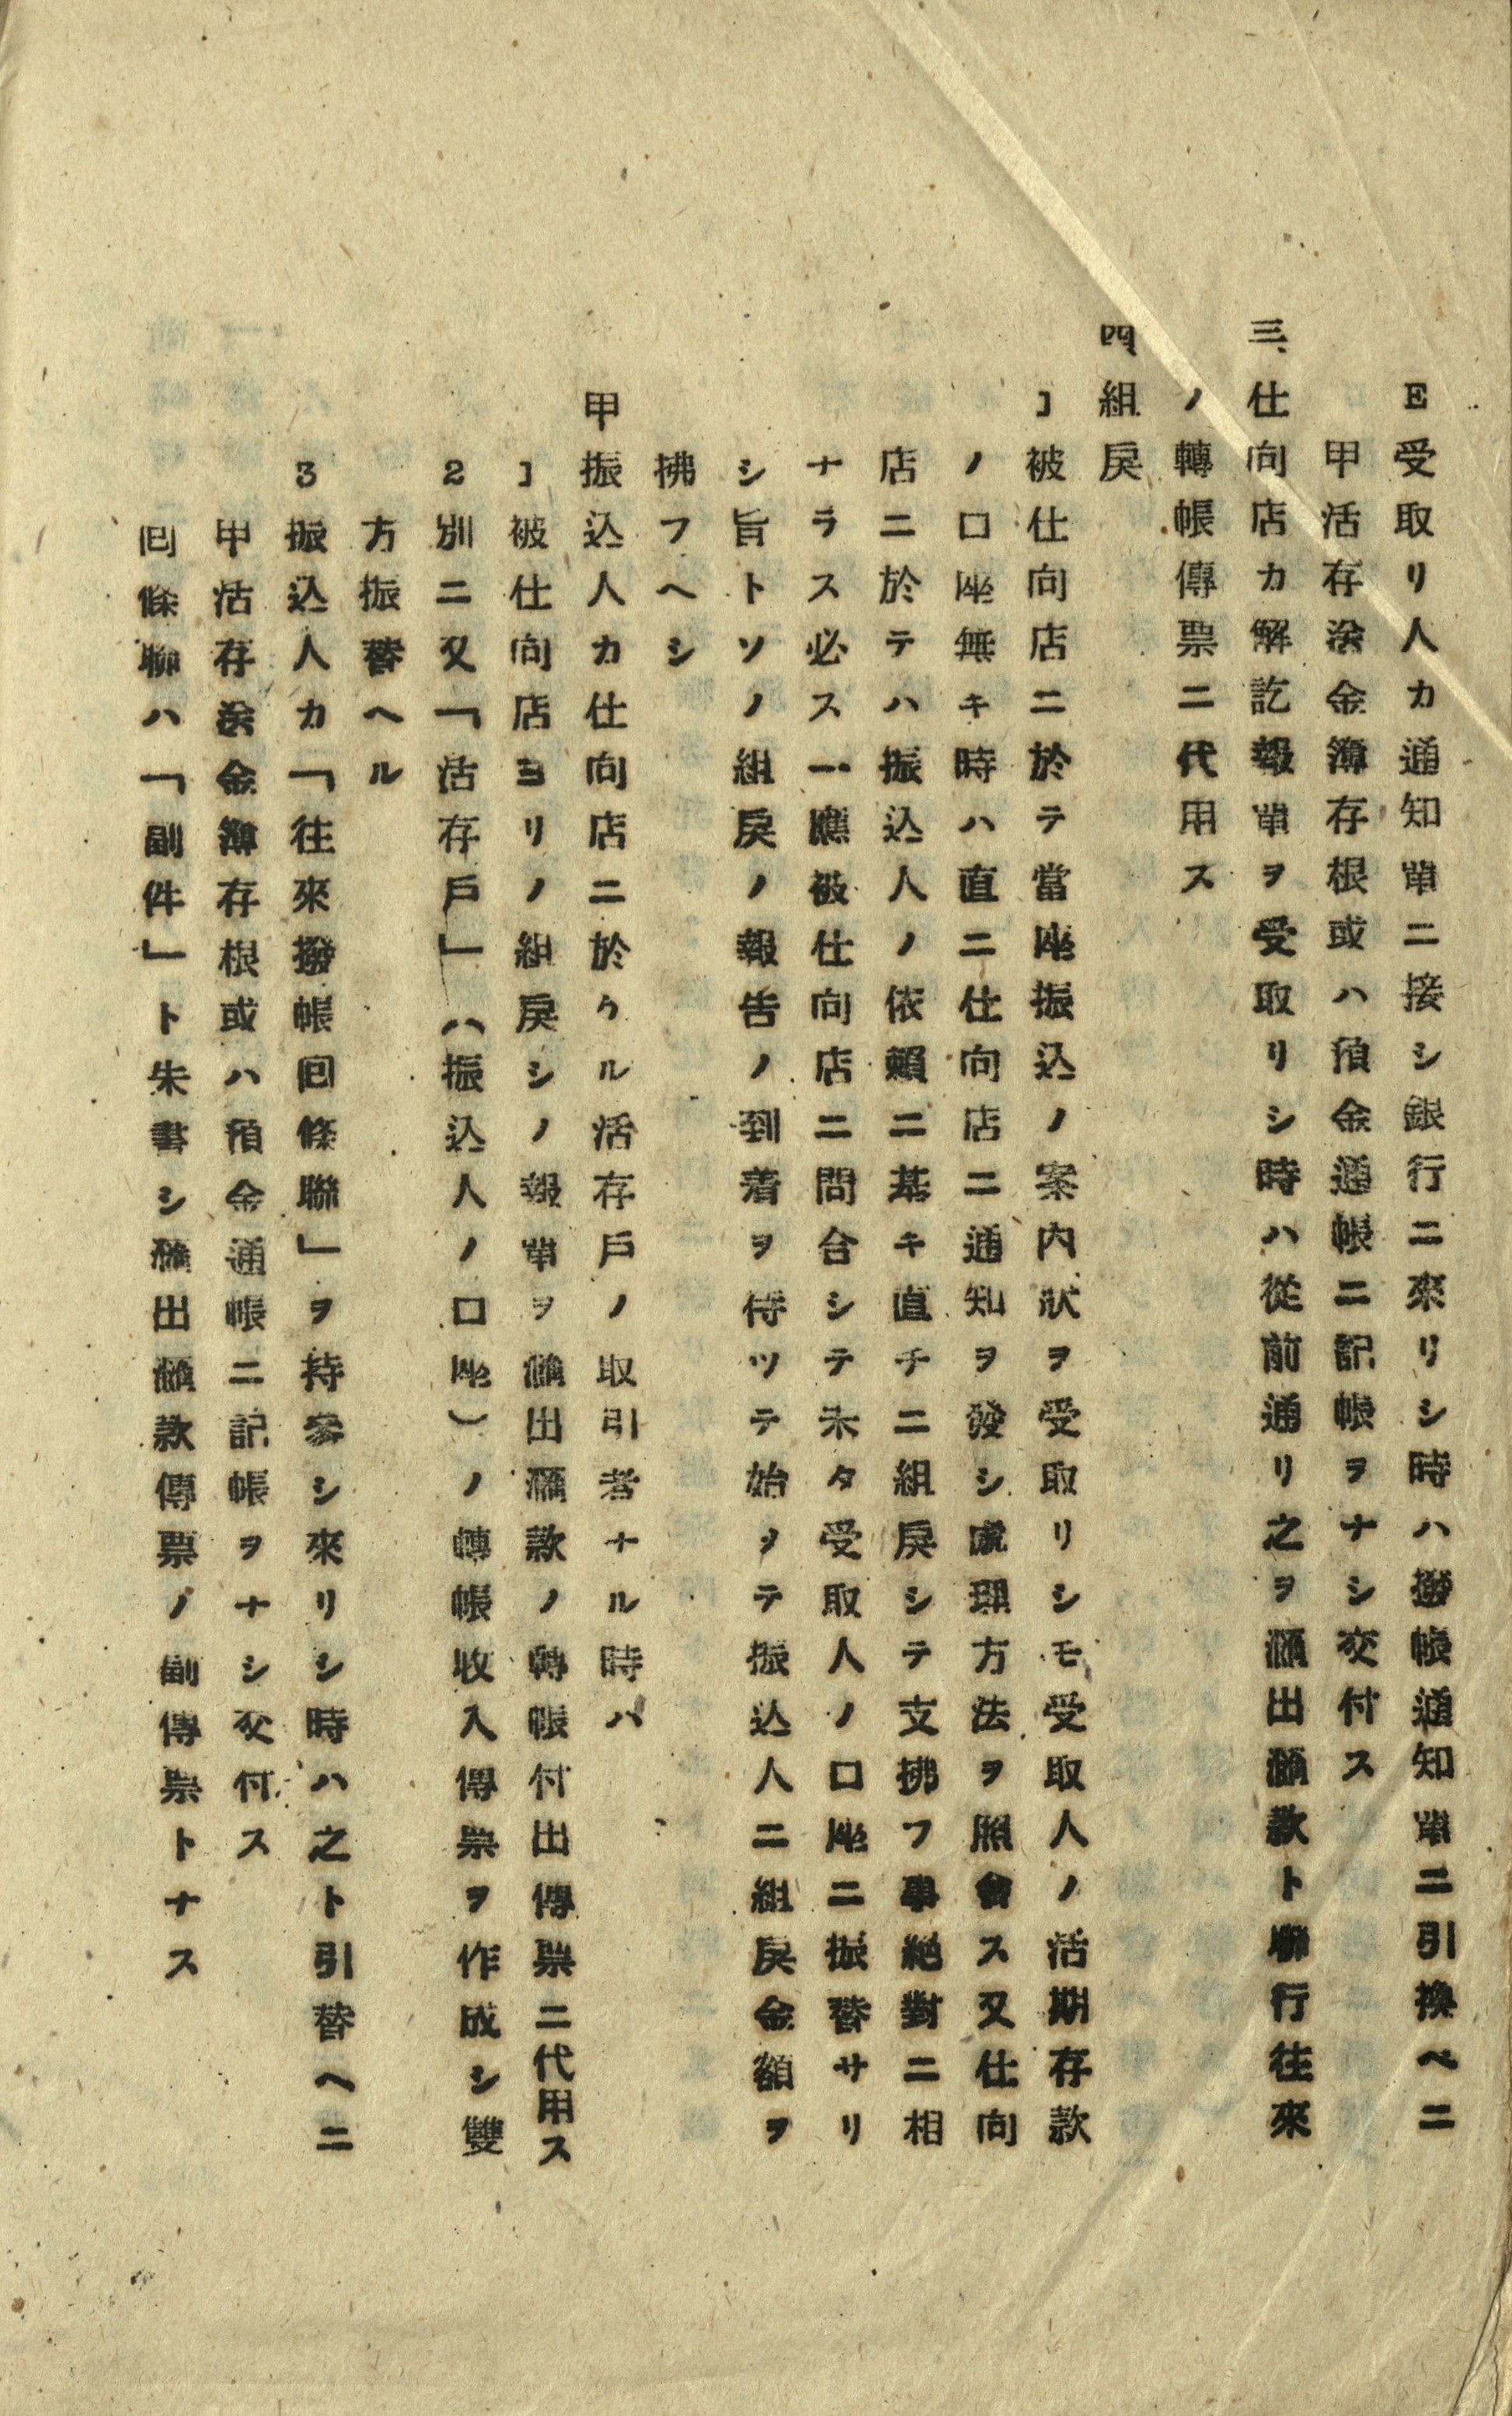 E受取リ人カ通知單ニ接シ銀行ニ來リシ時ハ撥帳通知單ニ引換ベニ
甲活存滾金簿存根或ハ預金通帳ニ記帳ヲナシ交付ス
三、仕向店カ解訖報單ヲ受取リシ時ハ從前通リ之ヲ滙出滙款ト聯行往來
ノ轉帳傳票ニ代用ス
四、組戾
1被仕向店ニ於テ當座振込ノ案内狀ヲ受取リシモ受取人ノ活期存款
ノ口座無キ時ハ直ニ仕向店ニ通知ヲ發シ處理方法ヲ照會ス又仕向
店ニ於テハ振込人ノ依賴ニ基キ直チニ組戾シテ支拂フ事絕對ニ相
ナラス必ス一應被仕向店ニ問合シテ未タ受取人ノ口座ニ振替サリ
シ旨トソノ組戾ノ報告ノ到着ヲ待ツテ始メテ振込人ニ組戾金額ヲ
拂フヘシ
甲振込人カ仕向店ニ於クル活存戶ノ取引者ナル時ハ
1被仕向店ヨリノ組戾シノ報單ヲ滙出滙款ノ轉帳付出傳票ニ代用ス
2別ニ又「活存戶」(振込人ノ口座)ノ轉帳收入傳票ヲ作成シ雙
方振替ヘル
3振込人カ「往來撥帳囘條聯」ヲ持參シ來リシ時ハ之ト引替ヘニ
甲活存滾金簿存根或ハ預金通帳ニ記帳ヲナシ交付ス
囘條聯ハ「副件」ト朱書シ滙出滙款傳票ノ副傳票トナス